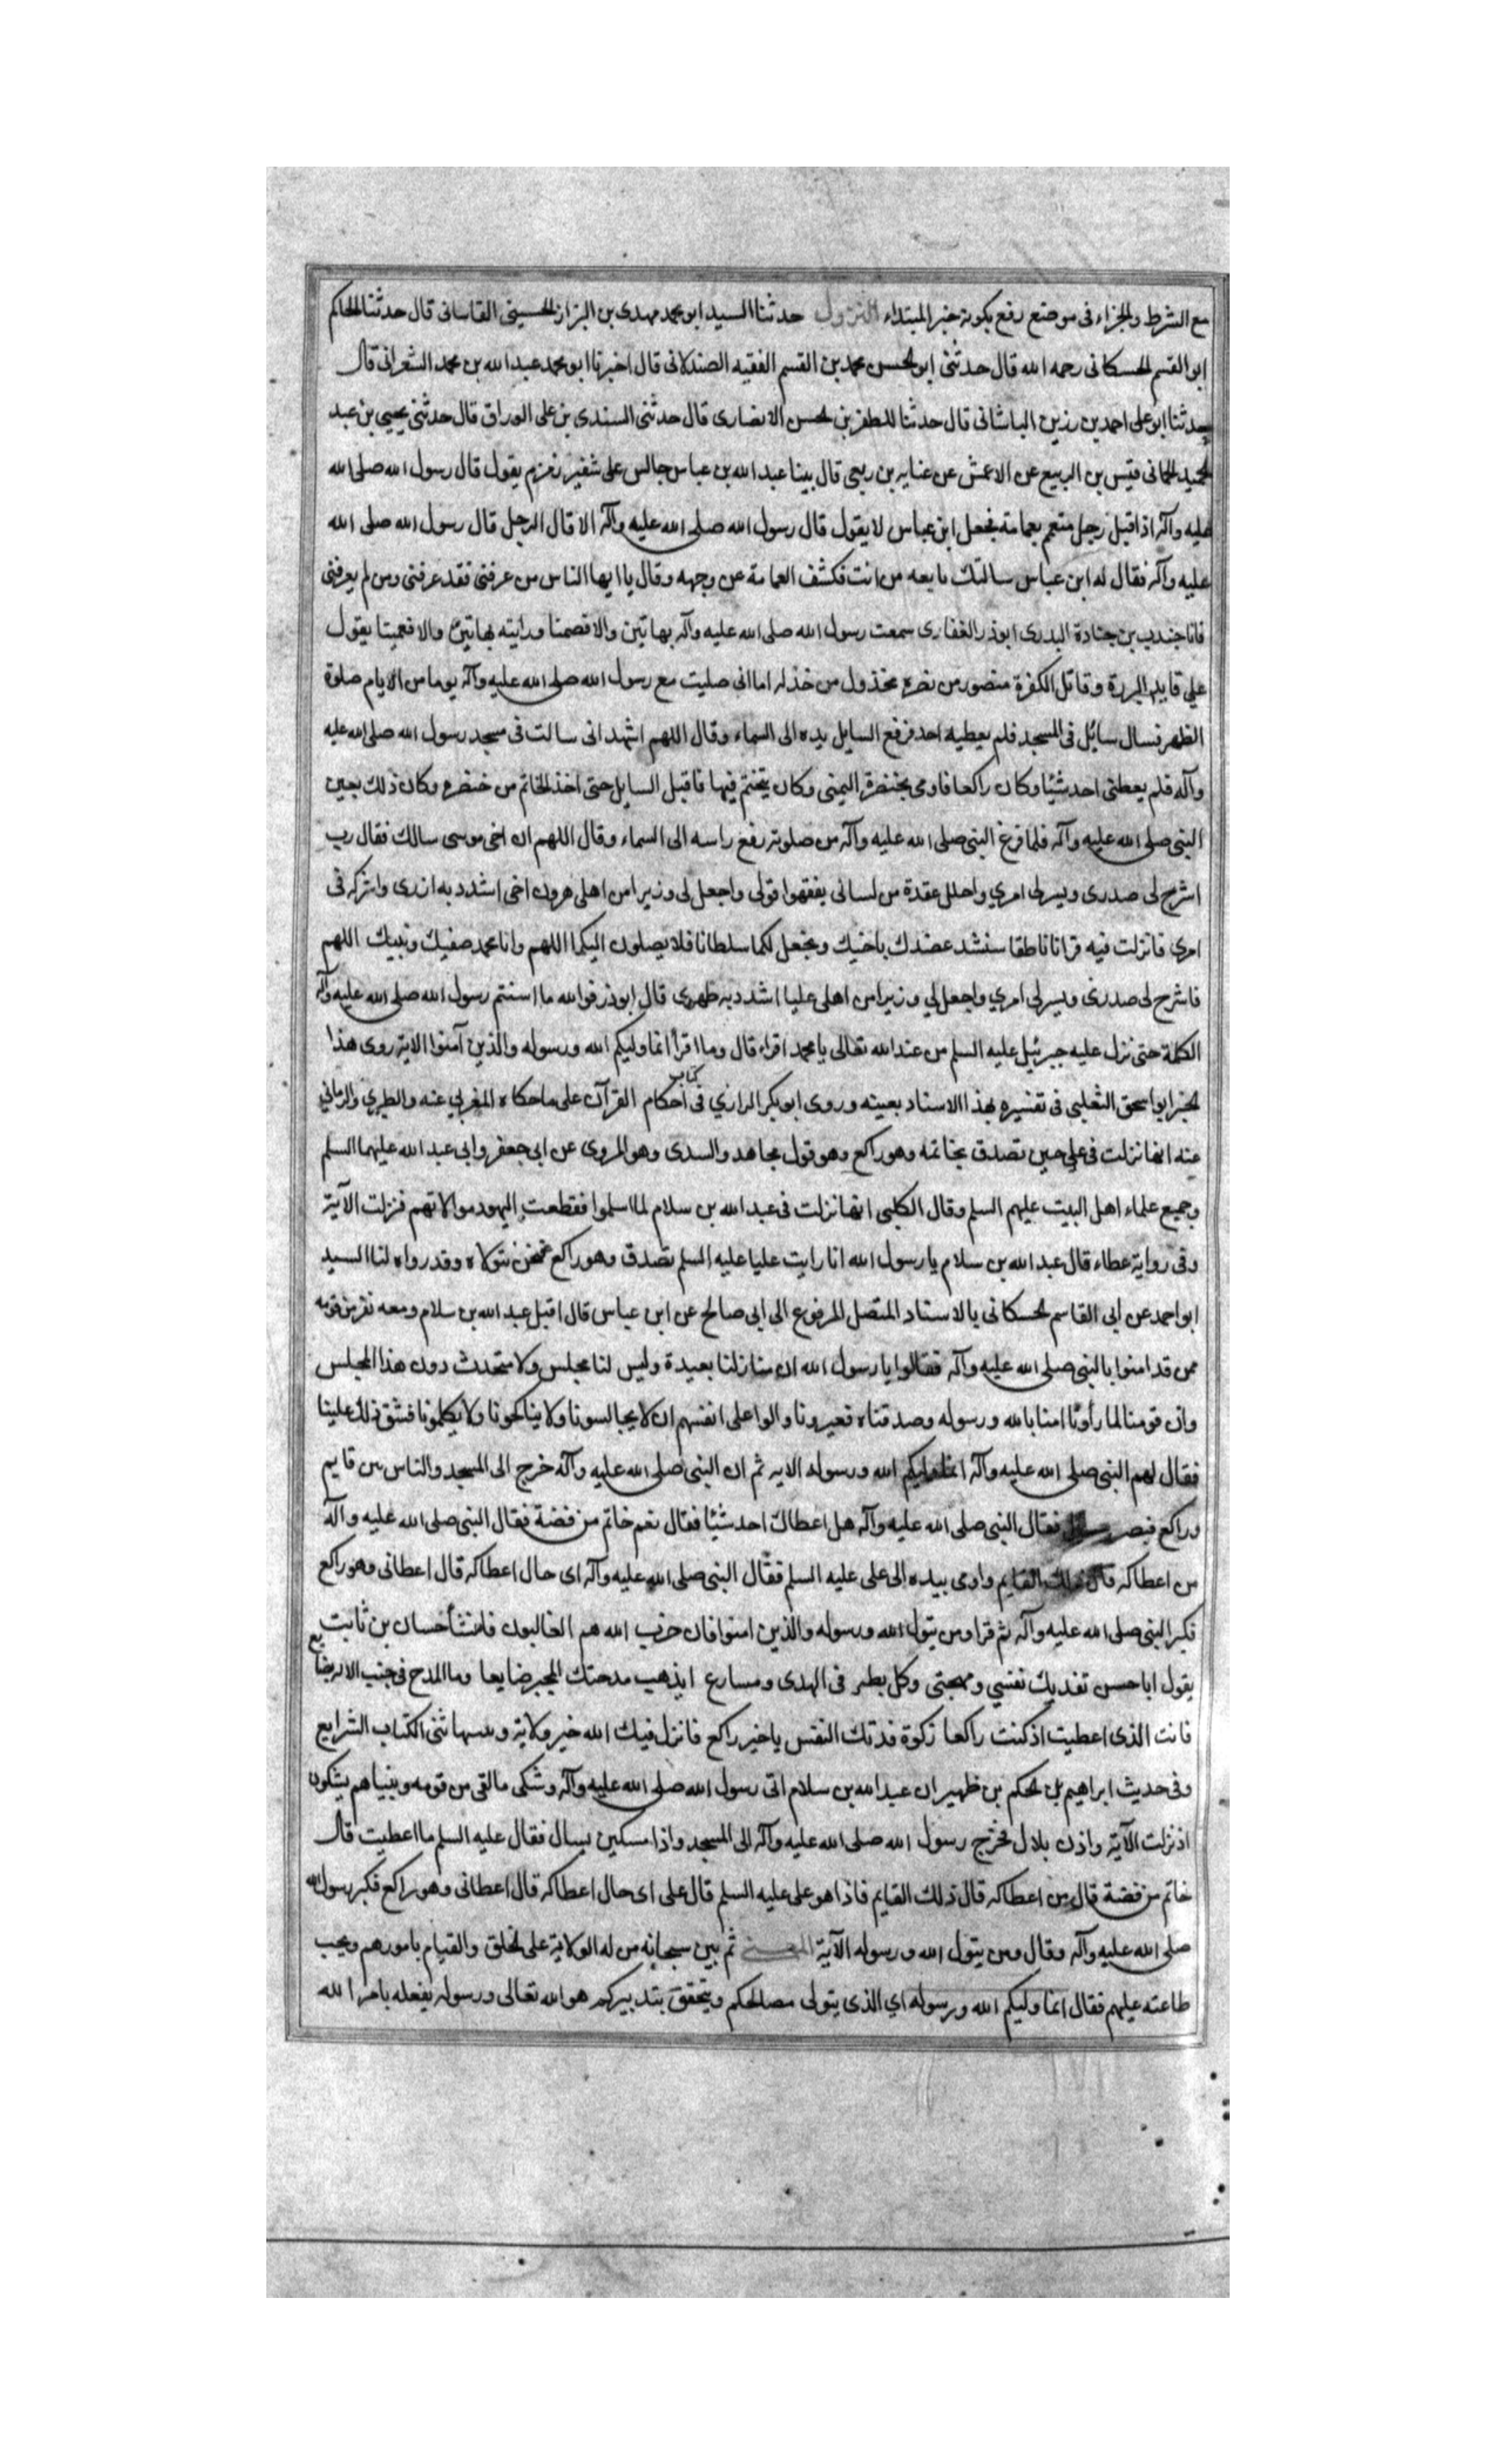 مع الشرط والجزاء فى موضع رفع بكونه خبر المبتداء النزول حدثنا السيد ابو محمد مهدى بن البزاز الحسينى القاسانى قال حدثنا الحاكم
ابو القسم الحسكانى رحمه الله قال حدثنى ابو الحسن محمد بن القسم الفقيه الصندلانى قال اخبرنا ابو محمد عبد الله بن محمد الشعرانى قال
حدثنا ابو على احمد بن رزين الباشانى قال حدثنا المظفر بن الحسن الانصارى قال حدثنى السندى بن على الوراق قال حدثنى يحيى بن عبد
الحميد الحمانى قيس بن الربيع عن الاعمش عن عنايه بن ربعى قال بينا عبد الله بن عباس جالس على شفير زمزم يقول قال رسول الله صلى الله
عليه وآله اذا قبل رجل متعم بعمامة فجعل ابن عباس لا يقول قال رسول الله صلى الله عليه وآله الا قال الرجل قال رسول الله صلى الله
عليه وآله فقال له ابن عباس سالتك من انت فكشف العمامة عن وجهه وقال يا ايها الناس من عرفنى فقد عرفنى ومن لم يعرفنى
فانا جندب بن جنادة البدرى ابوذر الغفارى سمعت رسول الله صلى الله عليه وآله بهاتين والا فصمتا ورايته بهاتين والا فعميتا يقول
على قايد البررة وقاتل الكفرة منصور من نصره مخذول من خذله اما انى صليت مع رسول الله صلى الله عليه وآله يوما من الايام صلوة
الظهر فسال سائل فى المسجد فلم يعطيه احد فرفع السايل يده الى السماء وقال اللهم اشهد انى سالت فى مسجد رسول الله صلى الله عليه
وآله فلم يعطنى احد شيئا وكان راكعا فاومى بخنصره اليمنى وكان يتختم فيها فاقبل السايل حتى اخذ الخاتم من خنصره وكان ذلك بعين
النبى صلى الله عليه وآله فلما فرغ النبى صلى الله عليه وآله من صلوته رفع راسه الى السماء وقال اللهم ان اخى موسى سالك فقال رب
اشرح لى صدرى ويسر لى امري واحلل عقدة من لسانى يفقهوا قولى واجعل لى وزيرا من اهلى هرون اخى اشدد به ازرى واشركه فى
امرى فانزلت فيه قرانا ناطقا سنشد عضدك باخيك ونجعل لكما سلطانا فلا يصلون اليكما اللهم وانا محمد صفيك ونبيك اللهم
فاشرح لى صدرى ويسر لى امري واجعل لي وزيرا من اهلى عليا اشدد به ظهرى قال ابوذر فوالله ما استتم رسول الله صلى الله عليه وآله
الكلمة حتى نزل عليه جبرئيل عليه السلم من عند الله تعالى يا محمد اقراء قال وما اقرأ انما وليكم الله ورسوله والذين آمنوا الاية روى هذا
الخبر ابو اسحق الثعلبى فى تفسيره بهذا الاسناد بعينه وروى ابو بكر الرازي فى كتاب احكام القرآن على ما حكاه المغربي عنه والطبري والرماني
عنه انها نزلت فى على حين تصدق بخاتمه وهو راكع وهو قول مجاهد والسدى وهو المروى عن ابى جعفر وابى عبد الله عليهما السلم
وجميع علماء اهل البيت عليهم السلم وقال الكلبى انها نزلت فى عبد الله بن سلام لما اسلموا فقطعت اليهود موالاتهم فنزلت الآية
وفى رواية عطاء قال عبد الله بن سلام يا رسول الله انا رايت عليا عليه السلم تصدق وهو راكع فنحن نتولاه وقد رواه لنا السيد
ابو احمد عن ابى القاسم الحسكانى بالاسناد المتصل المرفوع الى ابى صالح عن ابن عباس قال اقبل عبد الله بن سلام ومعه نفر من قومه
ممن قد امنوا بالنبى صلى الله عليه وآله فقالوا يا رسول الله ان منازلنا بعيدة وليس لنا مجلس ولا متحدث دون هذا المجلس
وان قومنا لما رأونا امنا بالله ورسوله وصدقناه فعيرونا والوا على انفسهم ان لا يجالسونا ولا يناكحونا ولا يكلمونا فشق ذلك علينا
فقال لهم النبى صلى الله عليه وآله انما وليكم الله ورسوله الايه ثم ان النبى صلى الله عليه وآله خرج الى المسجد والناس من قايم
وراكع فبصر فقال النبى صلى الله عليه وآله هل اعطاك احد شيئا فقال نعم خاتم من فضة فقال النبى صلى الله عليه وآله
من اعطاكه قال ذلك القايم واومى بيده الى على عليه السلم فقال النبى صلى الله عليه وآله اى حال اعطاكه قال اعطانى وهو راكع
فكبر النبى صلى الله عليه وآله ثم قرا ومن يتول الله ورسوله والذين امنوا فان حزب الله هم الغالبون فانشأ حسان بن ثابت
يقول ابا حسن تفديك نفسي ومهجتى وكل بطئ فى الهدى ومسارع ايذهب مدحتك المحبر ضايعا وما المدح فى جنب الاله بضايع
فانت الذى اعطيت اذ كنت راكعا زكوة فدتك النفس يا خير راكع فانزل فيك الله خير ولاية ثنى الكتاب الشرايع
وفى حديث ابراهيم بن الحكم بن ظهير ان عبد الله بن سلام اتى رسول الله صلى الله عليه وآله وشكى ما لقى من قومه وبنيا هم يشكون
اذ نزلت الآية واذن بلال فخرج رسول الله صلى الله عليه وآله الى المسجد واذا مسكين يسال فقال عليه السلم ما اعطيت قال
خاتم من فضة قال من اعطاكه قال ذلك القايم فاذا هو على عليه السلم قال على اى حال اعطاكه قال اعطانى وهو راكع فكبر رسول الله
صلى الله عليه وآله وقال ومن يتول الله ورسوله الآية المعنى ثم بين سبحانه من له الولاية على الخلق والقيام بامورهم ويجب
طاعته عليهم فقال انما وليكم الله ورسوله اي الذى يتولى مصالحكم ويتحقق بتدبيركم هو الله تعالى ورسوله بفعله بامر الله